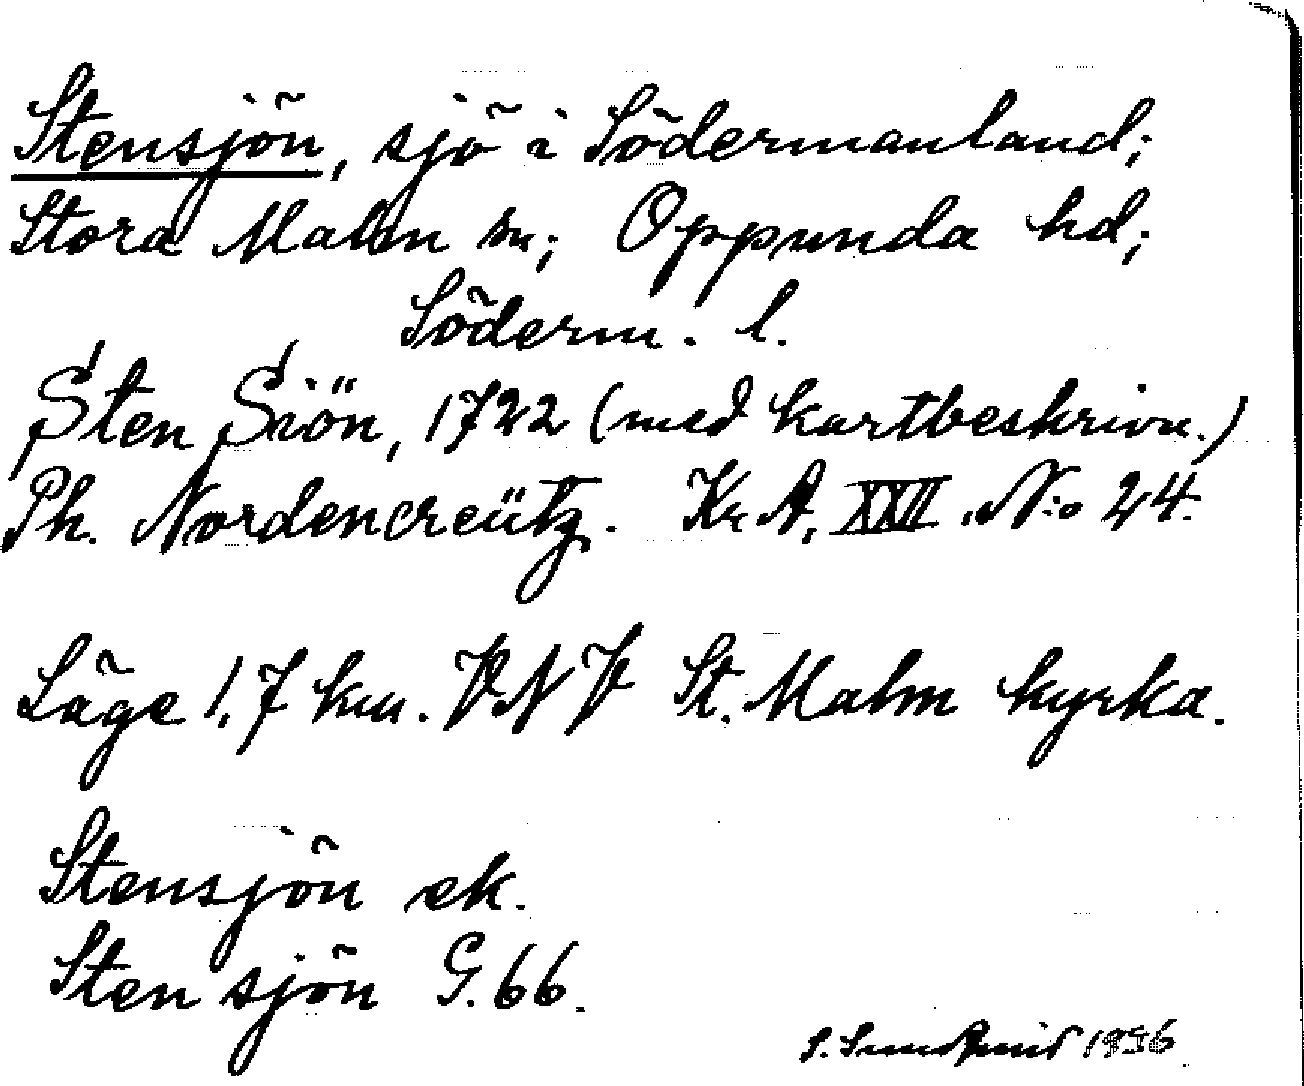 Stensjön, sjö i Södermanland;
Stora Malm sn; Oppunda hd;
Söderm. l.
Sten Siön, 1722 (med kartbeskrivn.)
Ph. Nordencreütz. Kr. A. XXII. N:o 24.
Läge 1,7 km. VNV St. Malm kyrka.
Stensjön ek.
Sten sjön G. 66.
S. Sundqvist 1936